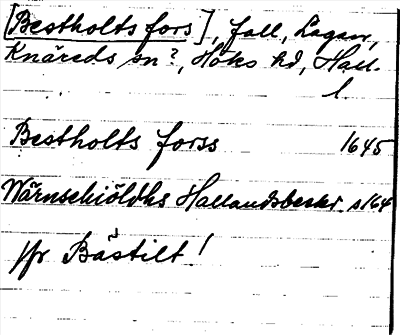 [Bestholts fors], fall, Lagan,
Knäreds sn?, Höks hd, Hall.
l.
Bestholts forss 1645
Wärnschiöldhs Hallandsbeskr. s 164
jfr Båstilt!